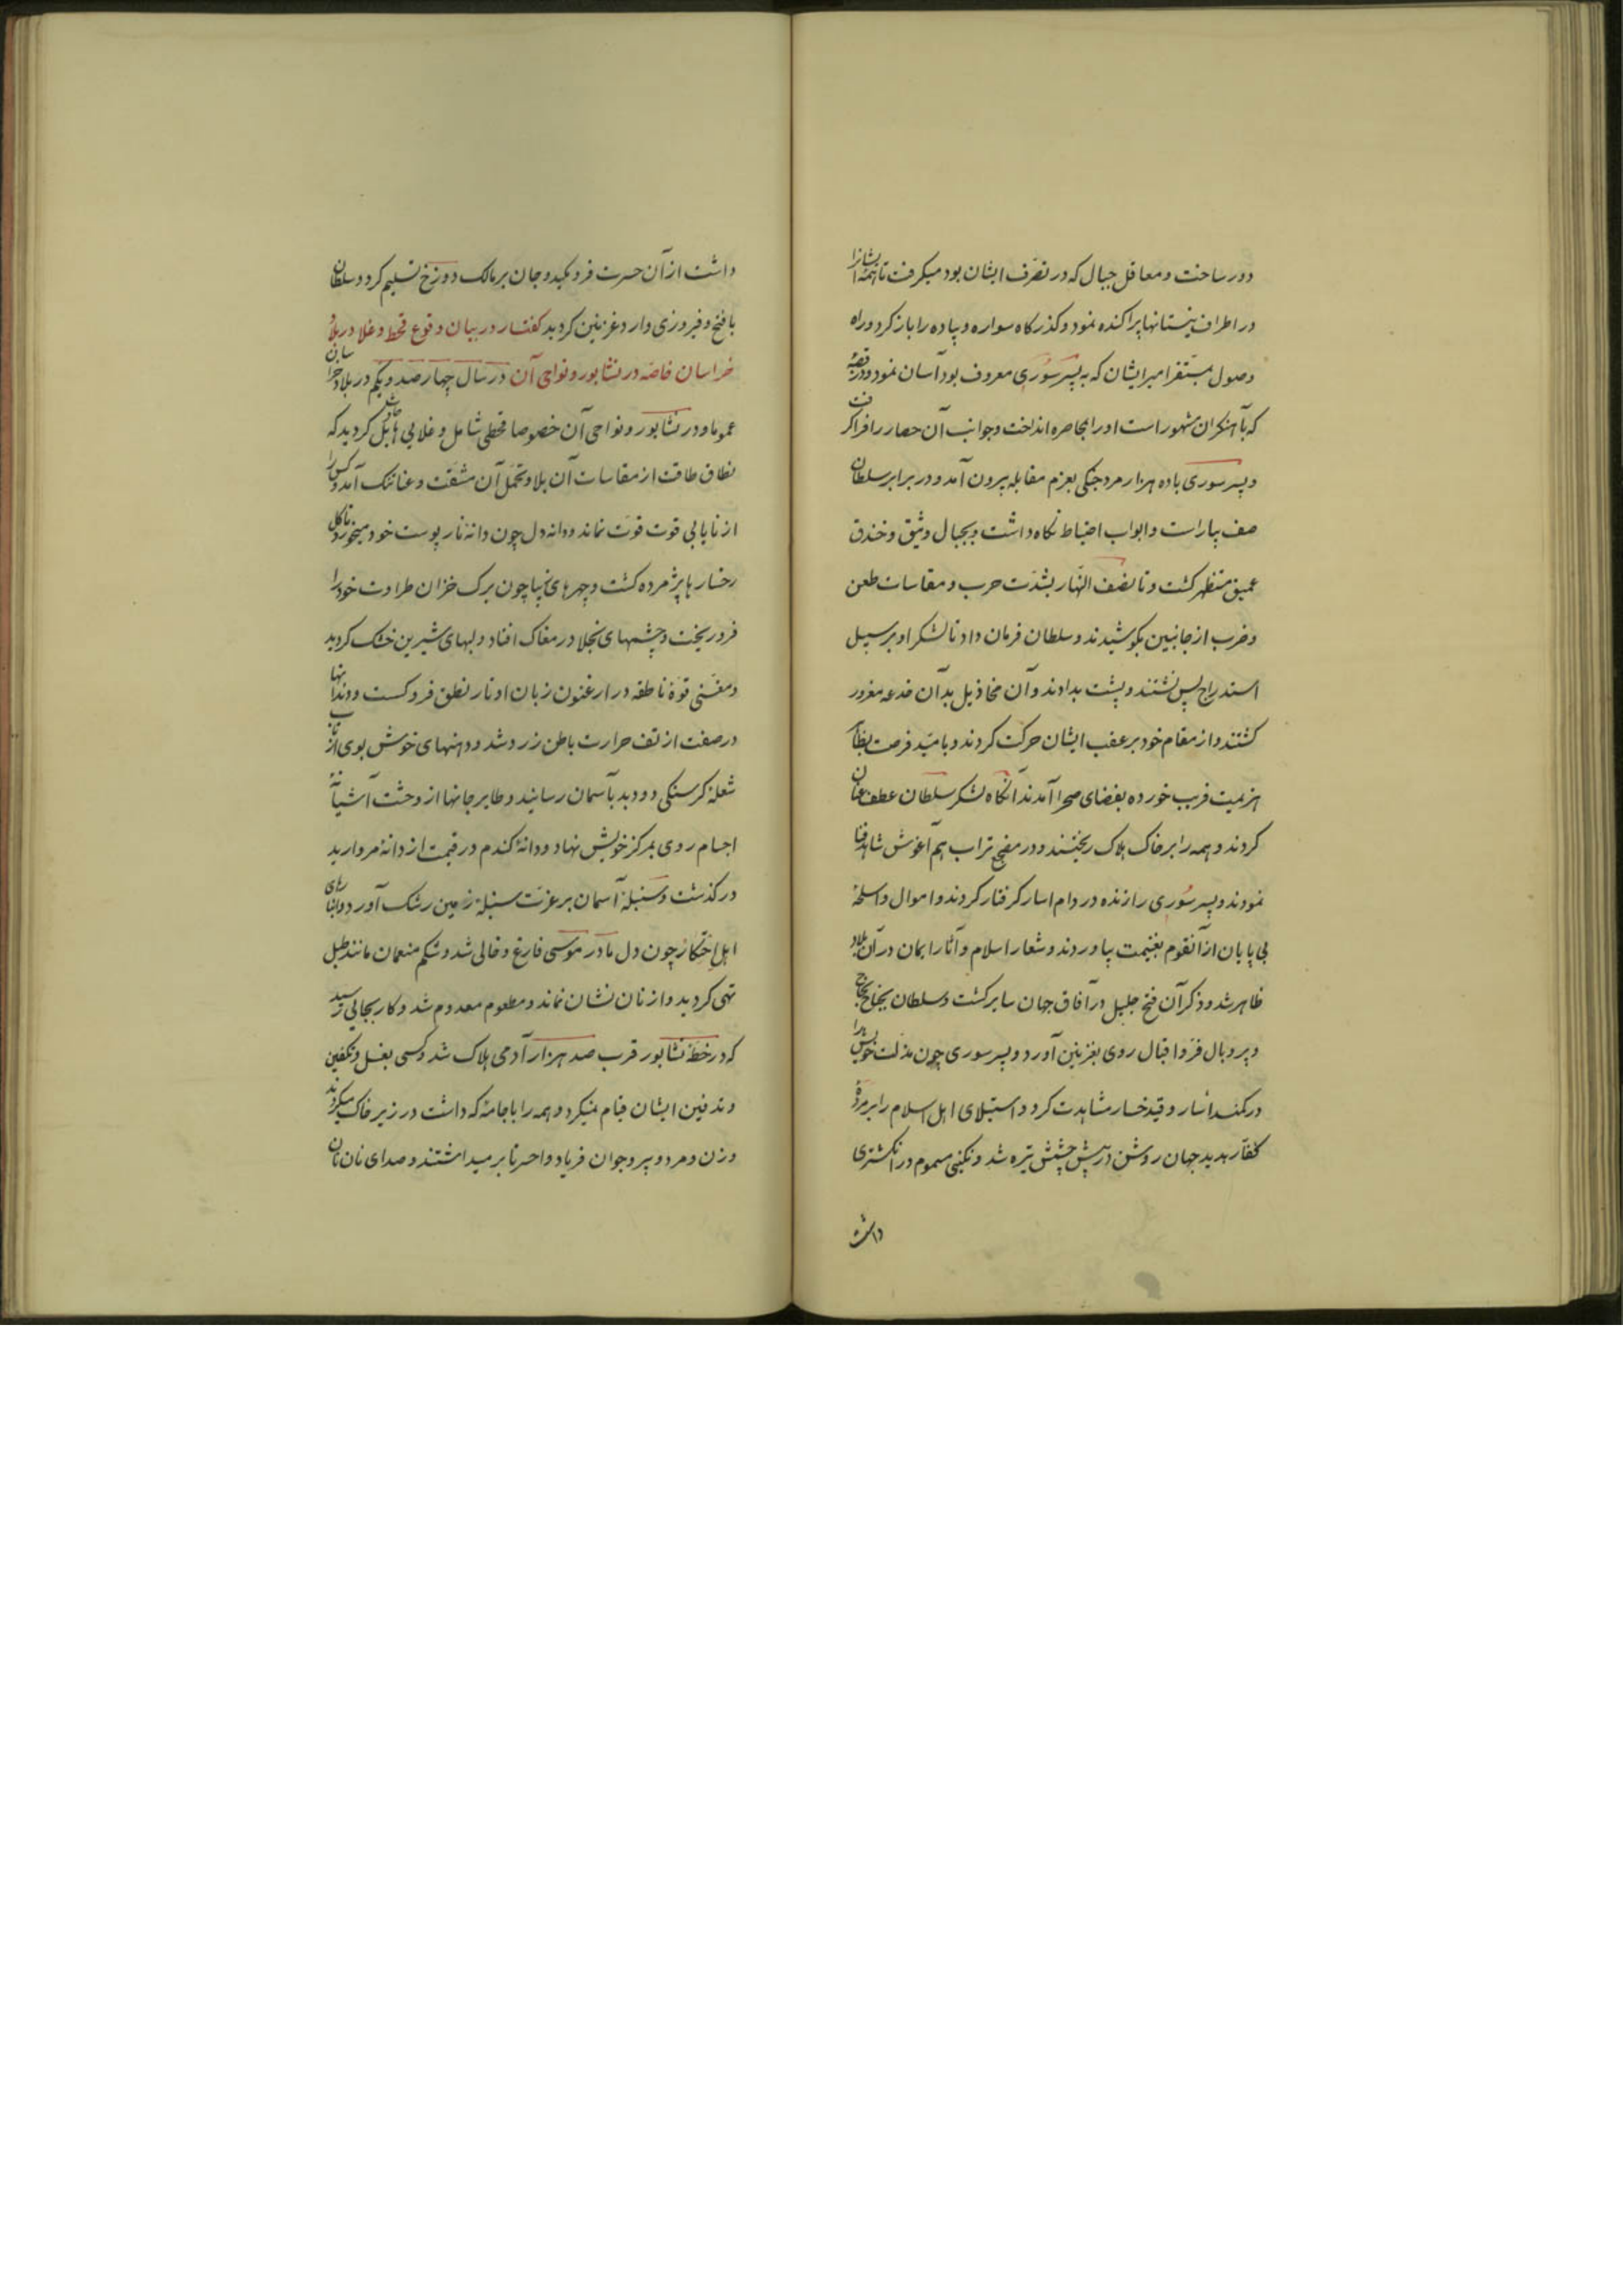 دور ساخت و معاقل جبال که در تصرف ایشان بود میکرفت تا همه ایشانرا
در اطراف نیستانها پراکنده نمود و کذرکاه سواره و پیاده را باز کرد و راه
وصول مستقر امیر ایشان که به پسر سوری معروف بود آسان نمود و در قصبهٔ
که بآهنکران مشهور است او را بمحاصره انداخت و جوانب آن حصار را فرا کرفت
و پسر سوری با ده هزار مرد جنکی بعزم مقابله بیرون آمد و در برابر سلطان
صف بیاراست و ابواب احتیاط نکاه داشت و بجبال وثیق و خندق
عمیق مستظهر کشت و تا نصف النهار بشدت حرب و مقاسات طعن
و ضرب از جانبین بکوشیدند و سلطان فرمان داد تا لشکر او بر سبیل
استدراج پس نشتند و پشت بدادند و آن مخاذیل بدان خدعه مغرور
کشتند و از مقام خود بر عقب ایشان حرکت کردند و بامید فرصت
هزیمت فریب خورده بفضای صحرا آمدند آنکاه لشکر سلطان عطف عنان
کردند و همه را بر خاک هلاک ریختند و در تراب هم آغوش شاهد فنا
نمودند و پسر سوری را زنده در دام اسار کرفتار کردند و اموال و اسلحهٔ
بی پایان از آنقوم بغنیمت بیاوردند و شعار اسلام و آثار ایمان در آن بلاد
ظاهر شد و ذکر آن فتح جلیل در آفاق جهان سایر کشت و سلطان بجناح نجاح
و پر و بال فر و اقبال روی بغزنین آورد و پسر سوری چون مذلت خویشرا
در کمند اسار و قید خسار مشاهدت کرد و استیلای اهل اسلام را بر مردهٔ
کفار بدید جهان روشن در پیش چشمش تیره شد و نکینی مسموم در انکشتری
داشت
داشت از آن حسرت فرو مکید و جان بر مالک دوزخ تسلیم کرد و سلطان
با فتح و فیروزی وارد غزنین کردید کفتار در بیان وقوع قحط و غلا در بلاد
خراسان خاصه در نشابور و نواحی آن در سال چهار صد و یکم در بلاد خراسان
عموما و در نشابور و نواحی آن خصوصا قحطی شامل و غلایی هایل حادث کردید که
نطاق طاقت از مقاسات آن بلا و تحمل آن مشقت و عنا تنک آمد و کس را
از نایابی قوت قوت نماند و دانه دل چون دانه نار پوست خود میخورد تا کل
رخسارها پژمرده کشت و چهرهای زیبا چون برک خزان طراوت خود را
فرو ریخت و چشمهای نجلا در مغاک افتاد و لبهای شیرین خشک کردید
و مغنی قوهٔ ناطقه در ارغنون زبان اوتار نطق فرو کست و دندانها
در صفت از تف حرارت باطن زرد شد و دهنهای خوش بوی از تاب
شعلهٔ کرسنکی دود بد بآسمان رسانید و طایر جانها از وحشت آشیانهٔ
اجسام روی بمرکز خویش نهاد و دانهٔ کندم در قیمت از دانهٔ مروارید
در کذشت و سنبلهٔ آسمان بر عزت سنبلهٔ زمین رشک آورد و انبارهای
اهل احتکار چون دل مادر موسی فارغ و خالی شد و شکم منعمان مانند طبل
تهی کردید و از نان نشان نماند و مطعوم معدوم شد و کار بجایی رسید
که در خطهٔ نشابور قرب صد هزار آدمی هلاک شد و کسی بغسل و تکفین
و تدفین ایشان قیام نمیکرد و همه را با جامهٔ که داشت در زیر خاک میکردند
و زن و مرد و پیر و جوان فریاد واحسرتا بر میداشتند و صدای نان نان